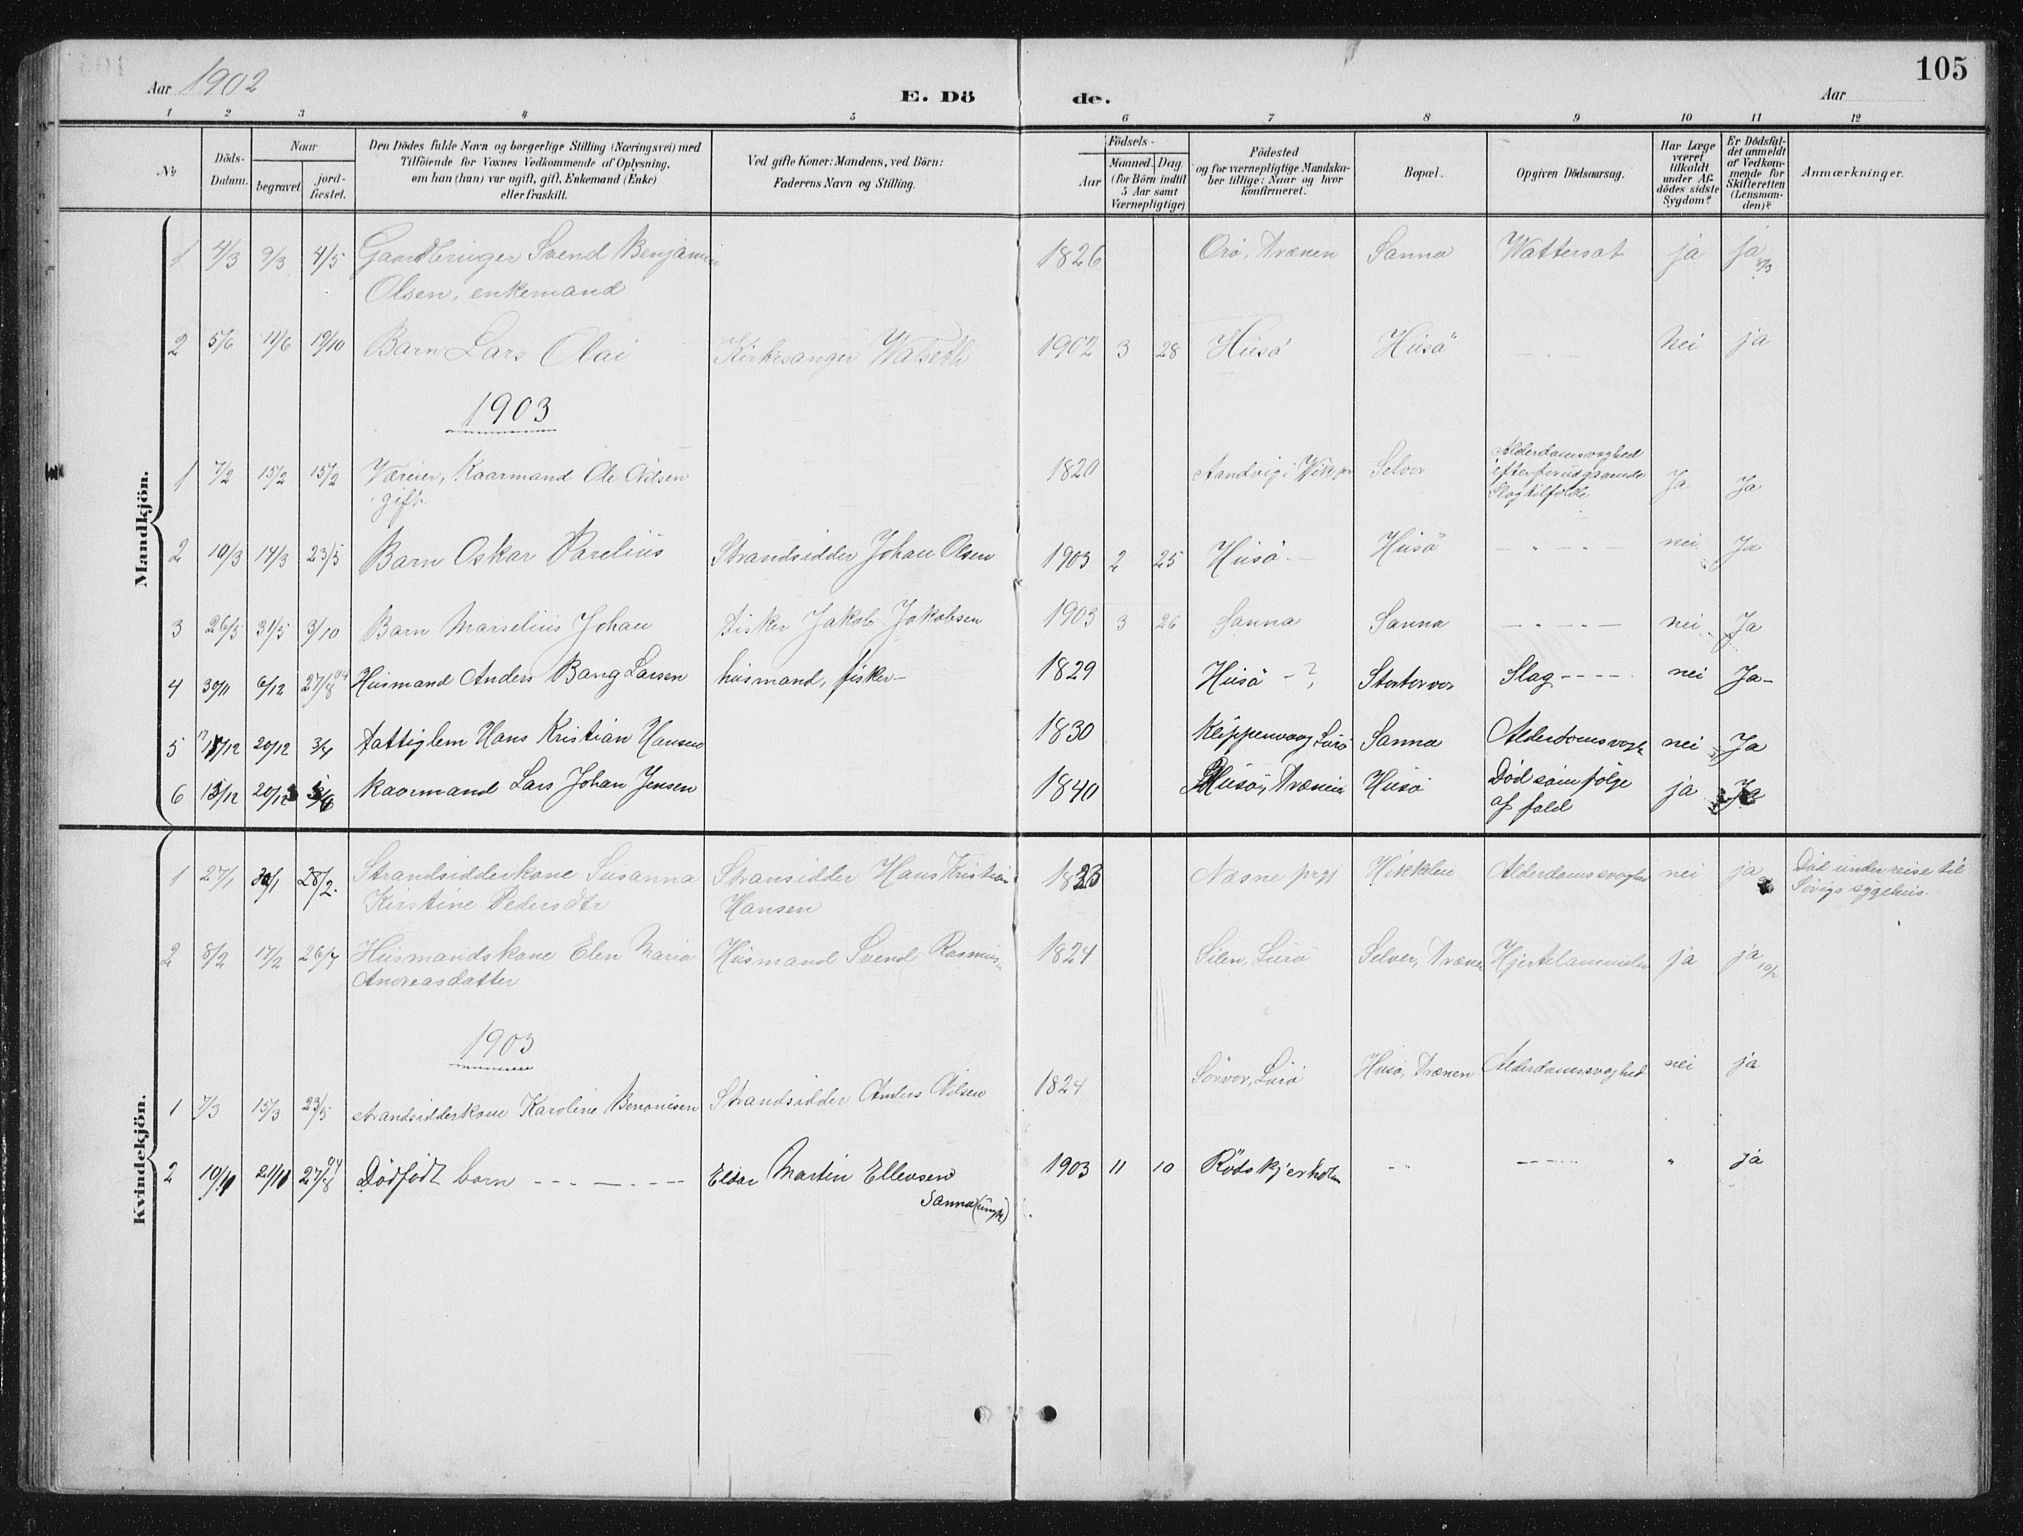 105
Aar 1902
E. Dö de.
Aar
1 2 3 4 5 6 7 8 9 10 11 12
No
Döds-Datum.
Naar begravet. jordfæstet.
Den Dödes fulde Navn og borgerlige Stilling (Næringsvei) med
Tilföiende for Voxnes Vedkommende af Oplysning,
om han (hun) var ugift, gift, Enkemand (Enke)
eller fraskilt.
Ved gifte Koner: Mandens, ved Börn:
Faderens Navn og Stilling.
Födsels-
Aar
Maaned. Dag
(for Börn indtil
5 Aar samt
Værnepligtige)
Födested
og for værnepligtige Mandska-
ber tillige: Naar og hvor
konfirmeret.
Bopæl.
Opgiven Dödsaarsag.
Har Læge
været
tilkaldt
under Af-
dödes sidste
Sygdom?
Er Dödsfal-
det anmeldt
af Vedkom-
mende for
Skifteretten
(Lensman-
den)?
Anmærkninger.
Mandkjön.
1 4/3 9/3 4/5 Gaardbruger Svend Benjamin 1826 Orö, Trænen Sanna Wattersot ja ja 8/3
Olsen, enkemand
2 5/6 11/6 19/10 Barn Lars Olai Kirkesanger Watseth 1902 3 28 Husö Husö nei ja
1903
1 7/2 15/2 15/2 Væreier, Kaarmand Ole Nilsen 1820 Selvær Alderdomsvaghed Ja Ja
gift. efter forudgaaende
Slagtilfælde
2 10/3 14/3 23/5 Barn Oskar Parelius Strandsidder Johan Olsen 1903 2 25 Husö Husö nei Ja
3 26/5 31/5 3/10 Barn Marselius Johan Fisker Jakob Jakobsen 1903 3 26 Sanna Sanna nei Ja
4 30/11 6/12 27/8 04 Husmand Anders Bang Larsen husmand, fisker 1829 Husö - ? Slag nei Ja
5 20/12 3/4 Fattiglem Hans Kristian Hansen 1830 Sanna nei Ja
6 13/12 20/12 Kaarmand Lars Johan Jensen 1840 Husö, Husö Död som fölge ja Ja
af fald
Kvindekjön.
1 27/1 28/2 Strandsidderkone Susanna Stransidder Hans Kristian 1823 Næsne prgj Alderdomssvaghed nei ja Död under reise til
Kirstine Pedersdtr Hansen Sövigs sygehus.
2 8/2 17/2 26/7 Husmandskone Elen Maria Husmand Svend Rasmus 1824 Silen, Lurö Selvær, Træna ja ja 10/2
Andreasdatter
1903
1 7/3 15/3 23/5 strandsidderkone Karoline Benonisen Strandsidder Anders Nilsen 1824 Sörvær, Lurö Husö, Trænen Alderdomssvaghed nei ja
2 10/11 21/11 27/8 04 Dödfödt barn Edvar Martin Ellevsen 1903 11 10 Rödskjerholm ja
Sanna (ungk)